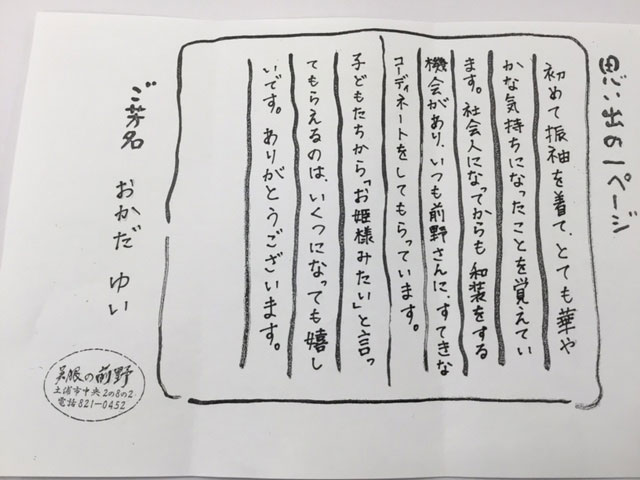 思い出の1ページ
初めて振袖を着て、とても華や
かな気持ちになったことを覚えてい
ます。社会人になってからも和装をする
機会があり、いつも前野さんに、すてきな
コーディネートをしてもらっています。
子どもたちから「お姫様みたい」と言っ
てもらえるのは、いくつになっても嬉し
いです。ありがとうございます。
ご芳名 おかだ ゆい
呉服の前野
土浦市中央2の8の2
電話821-0452